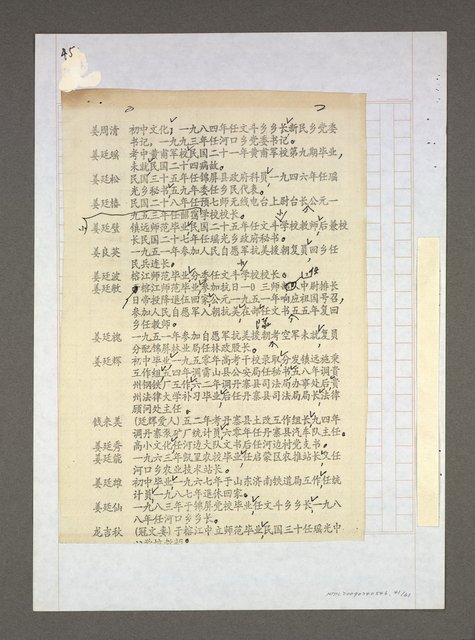 45
姜周清 初中文化，一九八四年任文斗乡乡长新民乡党委
书记，一九九三年任河口乡党委书记。
姜廷瑶 考中黄甫军校民国二十一年黄甫军校第九期毕业，
未就民国二十四病故。
姜廷松 民国三十五年任锦屏县政府科员一九四六年任瑶
光乡秘书五九年委任乡民代表。
姜廷椿 民国二十八年任预七师无线电台上尉台长公元一
九五三年任韶霭学校校长。
姜廷璧 镇远师范毕业民国二十五年任文斗学校教师后兼校
长民国二十七年任瑶光乡政府秘书。
姜良英 一九五一年参加人民自愿军抗美援朝复员回乡任
民兵连长。
姜廷波 榕江师范毕业委任文斗学校校长。
姜廷敏 榕江师范毕业参加抗日一０三师中尉排长
日帝投降退伍回家公元一九五一年响应祖国号召，
参加人民自愿军入朝抗美在师任文书五五年复回
乡任教师。
姜廷槐 一九五一年参加自愿军抗美援朝考空军未就复员
分配锦屏林业局任林政股长。
姜廷辉 初中毕业一九五零年高考干校录取分发镇远施秉
五作组五四年调雷山县公安局任秘书五八年调贵
州钢铁厂五九零二年调丹寨县司法局办事处后贵
州法律大学补习毕业后任丹寨县司法局局长法律
顾问处主任。
钱来美 (廷辉爱人)五二年考丹寨县土改五作组长九四年
调丹寨汞矿厂统计员六零年任丹寨县汽车队主任。
姜廷秀 高小文化任河边大队支书后任河边村党支书。
姜廷能 一九六三年凯里农校毕业任启蒙区农推站长后任
河口乡农业技术站长。
姜廷雄 初中毕业一九六七年于山东济南铁道局五作任统
计员一九八七年退休回家。
姜廷仙 一九八三年于锦屏党校毕业任文斗乡乡长一九八
八年任河口乡乡长。
龙吉秋 (冠文妻)于榕江中立师范毕业民国三十任瑶光中